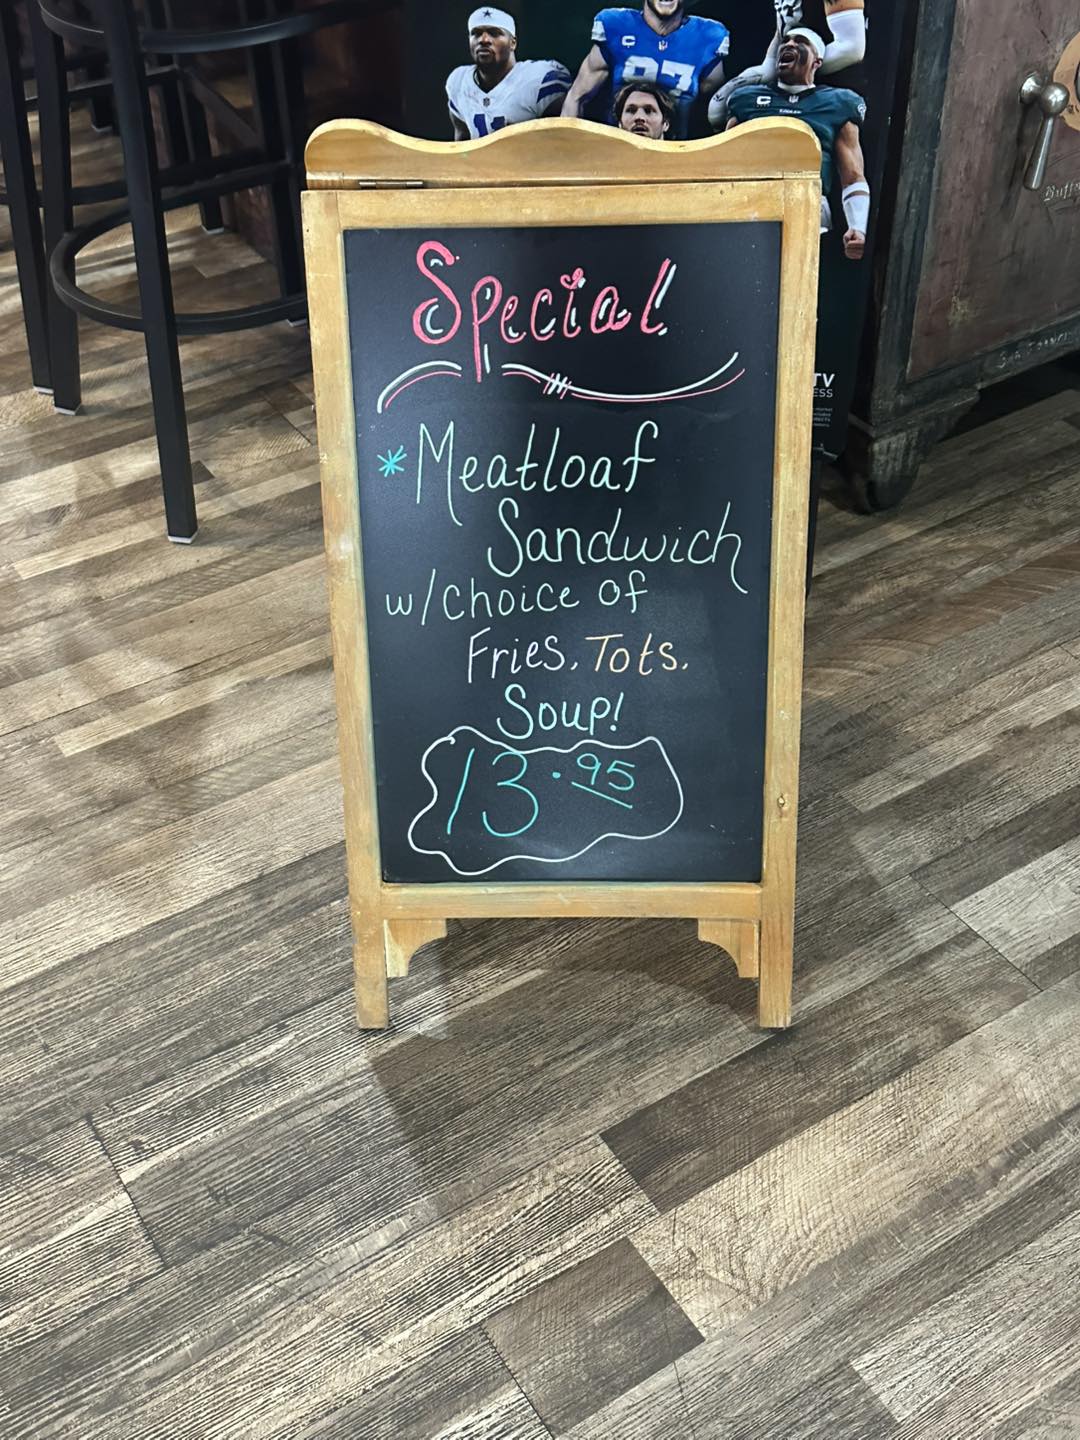 97
C
C
11
Special
*Meatloaf
Sandwich
w/Choice of
Fries, Tots,
Soup!
13.95
TV